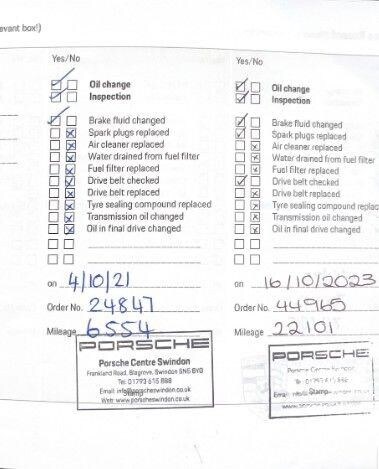 evant box!)
Yes/No
Oil change
Inspection
Brake fluid changed
Spark plugs replaced
Air cleaner replaced
Water drained from fuel filter
Fuel filter replaced
Drive belt checked
Drive belt replaced
Tyre sealing compound replaced
Transmission oil changed
Oil in final drive changed
on 4/10/21
Order No. 24847
Mileage 6554
PORSCHE
Porsche Centre Swindon
Frankland Road, Blagrove, Swindon SN5 8YD
Tel: 01793 615 888
Email: info@porscheswindon.co.uk
Stamp
Web: www.porscheswindon.co.uk
Yes/No
Oil change
Inspection
Brake fluid changed
Spark plugs replaced
Air cleaner replaced
Water drained from fuel filter
Fuel filter replaced
Drive belt checked
Drive belt replaced
Tyre sealing compound replac
Transmission oil changed
Oil in final drive changed
on 16/10/2023
Order No. 44965
Mileage 22101
PORSCHE
Porsche Centre
Stamp